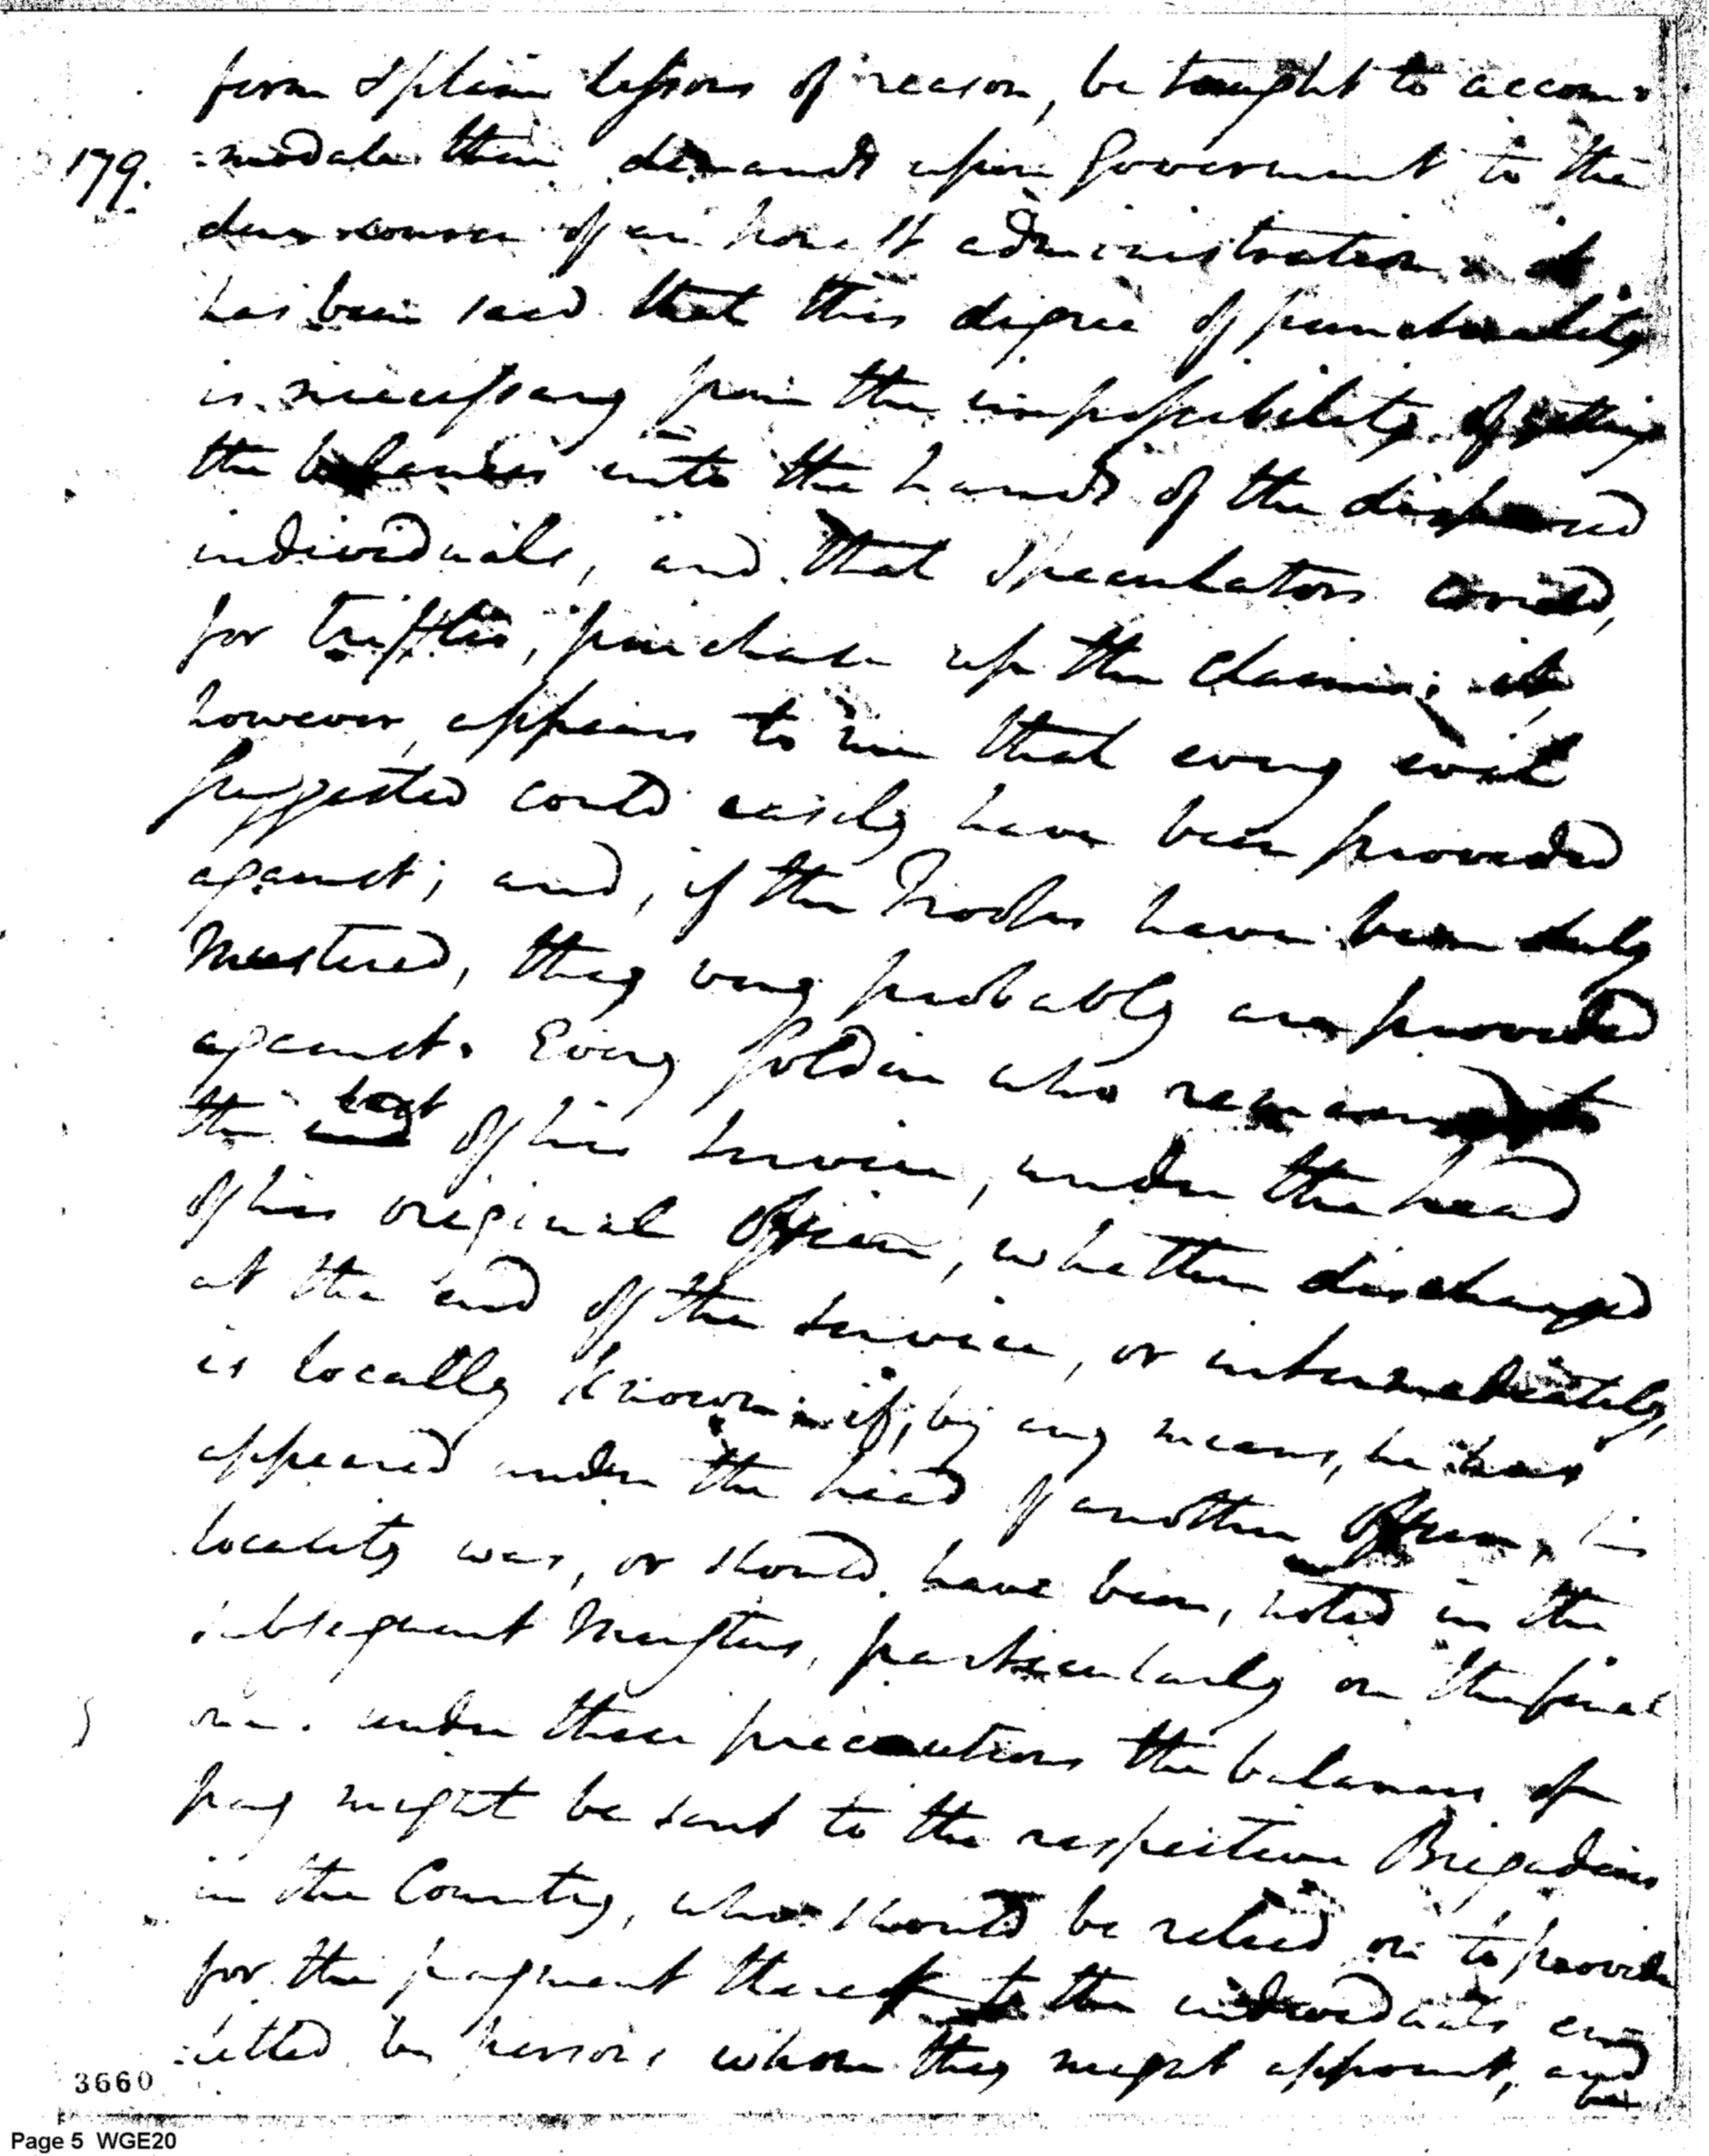 firm & plain lessons of reason, be taught to accom-
179.
=modate their demands upon Government to the
clear course of an honest administration. it
has been said that this degree of punctuality
is necessary from the impossibility of getting
the balances into the hands of the dispersed
individuals, and that Speculators would,
for trifles, purchase up the claims; it,
however, appears to me that every evil
suggested could easily have been provided
against; and, if the Troops have been duly
Mustered, they very probably are provided
against. Every soldier who remained to
the last of his service, under the head
of his original Officer, whether discharged
at the end of the service, or intermediately,
is locally known: if, by any means, he has
appeared under the head of another Officer, his
locality was, or should have been, noted in the
subsequent Musters, particularly on the final
one. under these precautions the balances of
pay might be sent to the respective Brigadiers
in the Country, who should be relied on to provide
for the payment thereof to the individuals en=
=titled by persons whom they might appoint, and
be
3660
Page 5 WGE20